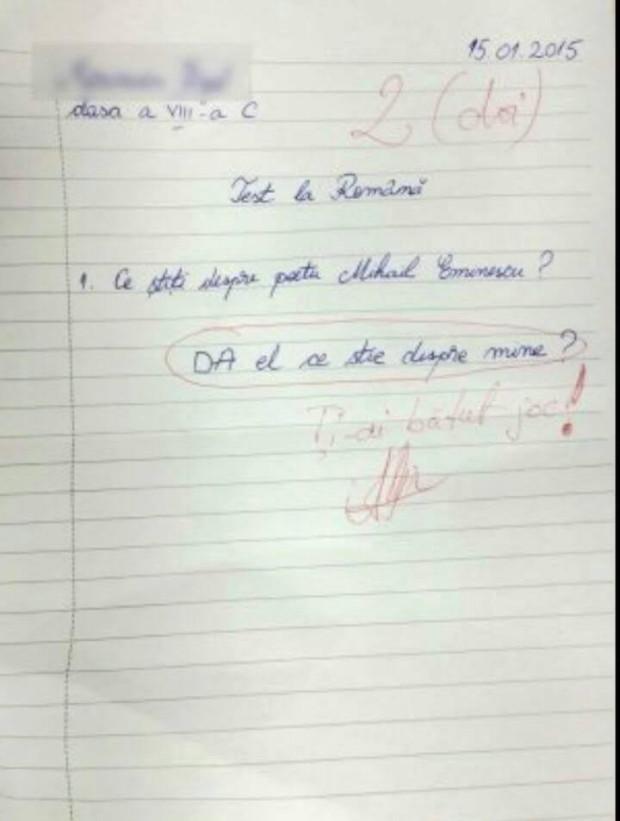 15.01.2015
clasa a VIII-a C
2 (doi)
Test la Română
1. Ce știți despre poetu Mihail Eminescu?
DA el ce știe despre mine?
Ți-ai bătut joc!